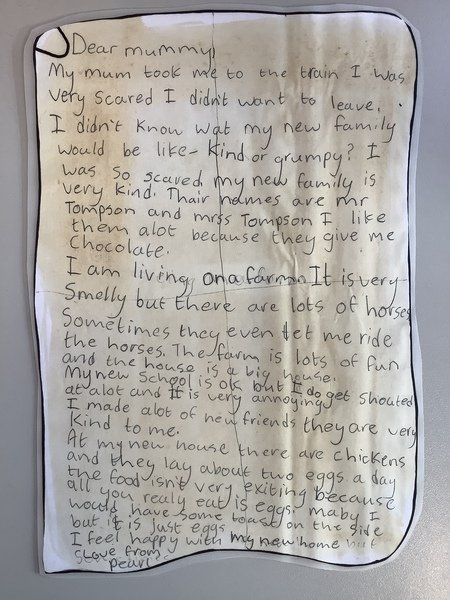 Dear mummy,
My mum took me to the train I was
very scared I didn't want to leave.
I didn't know wat my new family
would be like- kind or grumpy? I
was so scared my new family is
very kind. Thair names are mr
Tompson and mrss Tompson I like
them alot because they give me
Chocolate.
I am living on a farm It is very
Smelly but there are lots of horses
Sometimes they even let me ride
the horses. The farm is lots of fun
and the house is a big house.
My new School is ok but I do get shouted
at alot and It is very annoying
I made alot of new friends they are very
kind to me.
At my new house there are chickens
and they lay about two eggs a day
the food isn't very exiting because
all you realy eat is eggs. maby I
would have some toast on the side
but it is just eggs
I feel happy with my new home
love from
pearl